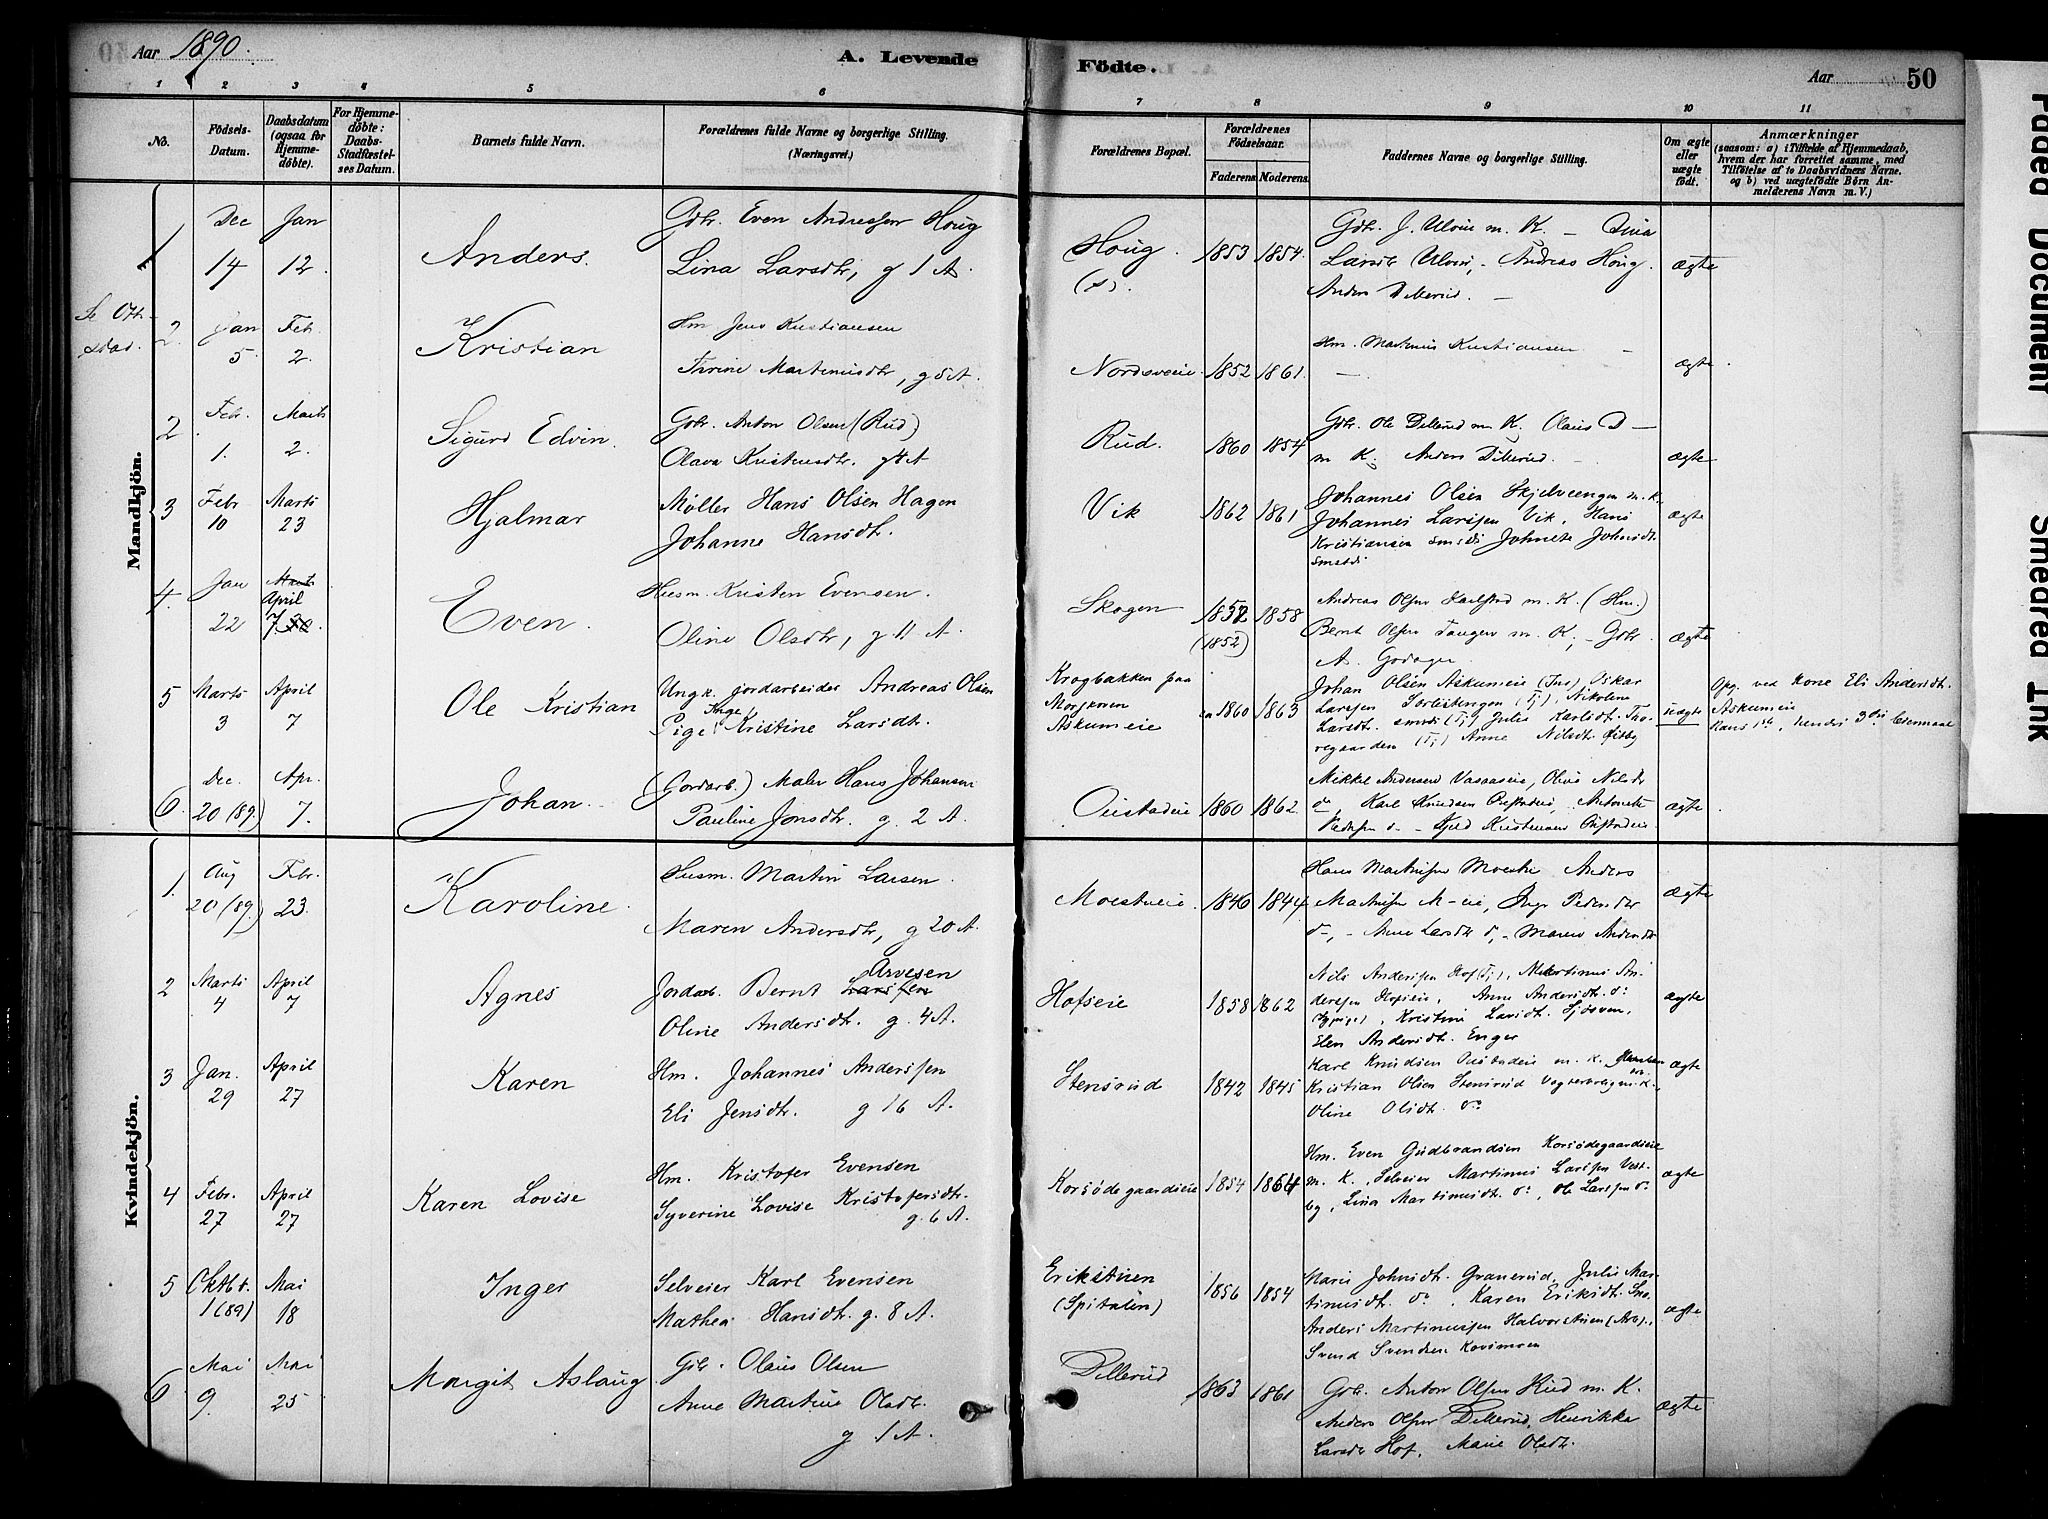 Aar 1890.
A. Levende
Fødte.
Aar 50
1 2 3 4 5 6 7 8 9 10 11
No.
Födsels-Datum.
Daabsdatum (ogsaa for Hjemme-döbte).
For Hjemme-döbte: Daabs-Stadfæstel-ses Datum.
Barnets fulde Navn.
Forældrenes fulde Navne og borgerlige Stilling. (Næringsvei.)
Forældrenes Bopæl.
Forældrenes Födselsaar.
Faderens. Moderens.
Faddernes Navne og borgerlige Stilling.
Om ægte eller uægte födt.
Anmærkninger
(saasom: a) i Tilfælde af Hjemmedaab, hvem der har forrettet samme, med Tilföielse af to Daabsvidners Navne. og b) ved uægtefödte Börn An-melderens Navn m. V.)
Mandkjön.
1 Dec 14 Jan 12. Anders.
Gbr. Even Andreassen Houg
Lina Larsdtr, g 1 A.
Houg 1853 1854.
Gbr. J. Ulven m. K. —
Andreas Houg.
Anders Dillerud. —
ægte
2. Jan 5. Feb. 2. Kristian
Hm Jens Kristiansen
Thrine Martinusdtr, g 5 A.
Nordsveie. 1852 1861.
Hm. Martinus Kristiansen —
ægte.
2 Febr. 1. Marts 2. Sigurd Edvin.
Gbr. Anton Olsen (Rud)
Olava Kristensdtr. g 4 A
Rud. 1860 1854
Gbr. Ole Dillerud m K. Olaus D—
m K. Anders Dillerud. — ægte
3 Febr 10 Marts 23 Hjalmar
Møller Hans Olsen Hagen
Johanne Hansdtr.
Vik 1862 1861
Johannes Olsen Skjelveengen m. K.
Johannes Larssen Vik, Hans
Kristiansen Smedsr Johnete Johnsdt.
ægte
4. Jan 22 April 7. Even.
Husm. Kristen Evensen.
Oline Olsdtr, g 11 A.
Skogen 1852 1858
(1852)
Andreas Olsen Karlstad m. K. (Hm.)
Bernt Olsen Tangen m. K; — Gbr.
A. Godager
ægte
5 Marts 3 April 7 Ole Kristian
Ungk. jordarbeider Andreas Olsen
Pige Inge Kristine Larsdtr.
Krogbakken paa
Morskoven
Askumeie
1860 1863
Johan Olsen Askumeie Oskar
Larssen (Tj) Nikoline
Larsdt. (Tj) Julie Karlsdt.
(Tj) Anne Nilsdt.
uægte
Opg. ved Kone Eli Andersdt.
Askumeie
Hans 1ste, hendes 3die Leiermaal
6. Dec. 20 (89) Apr. 7. Johan.
(Jordarb.) Maler Hans Johansen
Pauline Jonsdtr. g. 2 A.
Ouistadeie 1860 1862
Mikkel Andersen Olius Nilsdt
do, Karl Knudsen Ouistadeie, Antonette
ægte
Kvindekjön.
1. Aug 20 (89) Febr. 23. Karoline
Husm. Martin Larsen.
Maren Andersdtr, g 20 A.
Moestueie. 1846 1844
Hans Martinsen Moestue Anders
Martinsen M—eie, Inge Pedersdtr
do, — Anne Larsdt do, — Maren Andersdt
ægte
2 Marts 4 April 7 Agnes
Jordarb. Bernt Larssen Arvesen
Oline Andersdtr. g. 4 A.
Hofseie 1858 1862
Nils Anderssen Hof (Tj), Martinus An-
derssen Hofseie, Anne Andersdt. do
Kristine Larsdt. Sjösven,
Elen Andersdt. Enger
ægte
3 Jan. 29 April 27 Karen
Hm. Johannes Anderssen
Eli Jensdtr. g 16 A.
Stensrud 1842 1845
Karl Knudsen Ouistadeie m. K.
Kristian Olsen Stensrud m. K.,
Oline Olsdt. do
ægte
4 Febr. 27 April 27 Karen Lovise
Hm. Kristofer Evensen
Syverine Lovise Kristofersdtr.
g. 6 A.
Korsödegaardseie 1854 1864
Hm. Even Gudbrandsen Korsödegaardseie
m. K., Selveier Martinus Larssen Vest-
by, Lina Martinusdt. do, Ole Larssen do
ægte
5 Oktbr. 1 (89) Mai 18 Inger
Selveier Karl Evensen
Mathea Hansdtr. g. 8 A.
Erikstuen
(Spitalen)
1856 1854
Marie Johnsdt. Granerud, Julie Mar-
tinusdt. do, Karen Eriksdt.
Anders Martinussen Halvorstuen (Arb).,
Svend Svendsen
ægte
6 Mai 9. Mai 25 Margit Aslaug
Gbr. Olaus Olsen
Anne Martine Olsdtr.
g 1 A.
Dillerud 1863 1861
Gbr. Anton Olsen Rud m. K.
Anders Olsen Dillerud, Henrikka
Larsdt Hof, Marie Olsdtr.
ægte
Faded Document Smeared Ink